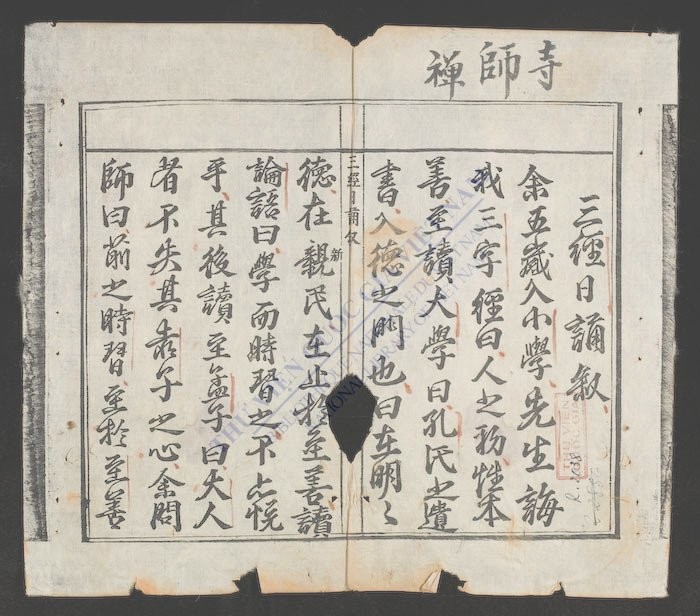 禪師寺
三經日誦叙
余五歲入小學先生誨
我三字經曰人之初性本
善至讀大學曰孔氏之遺
書入德之門也曰在明〻
三經日誦叙
德在親民在止於至善讀
新
論語曰學而時習之不亦悅
乎其後讀至孟子曰大人
者不失其赤子之心余問
師曰前之時習至於至善
THƯ VIỆN QUỐC GIA VIỆT NAM
NATIONAL LIBRARY OF VIETNAM